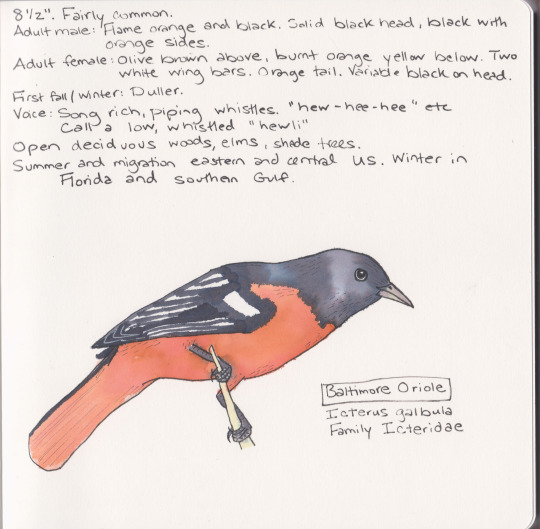 8 1/2". Fairly common.
Adult male: Flame orange and black. Solid black head, black with
orange sides.
Adult female: Olive brown above, burnt orange yellow below. Two
white wing bars. Orange tail. Variable black on head.
First fall/winter: Duller.
Voice: Song rich, piping whistles. "hew-hee-hee" etc
Call a low, whistled "hewli"
Open deciduous woods, elms, shade trees.
Summer and migration eastern and central US. Winter in
Florida and southern Gulf.
Baltimore Oriole
Icterus galbula
Family Icteridae